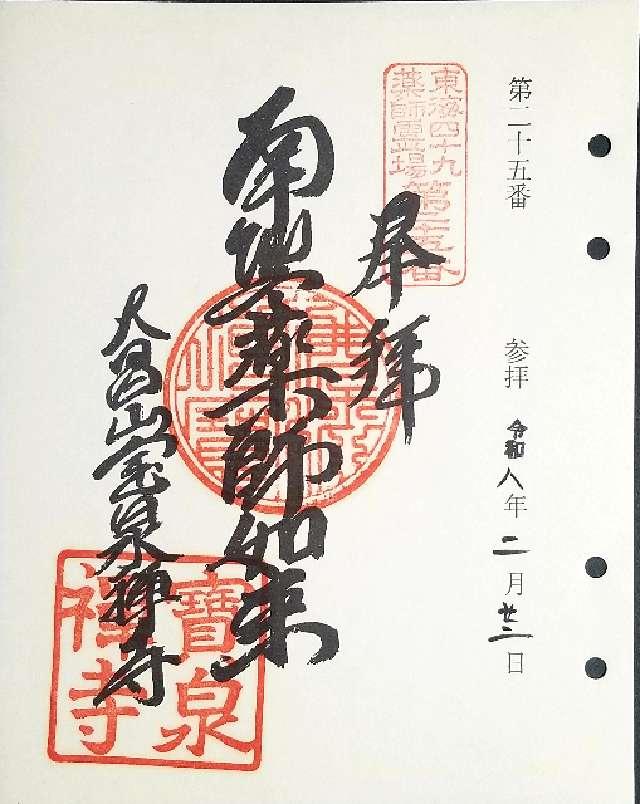 第二十五番 参拝 令和八年二月廿二日
東海四十九
薬師霊場第二十五番
奉拝
南無薬師如来
大昌山宝泉禅寺
寶泉
禅寺